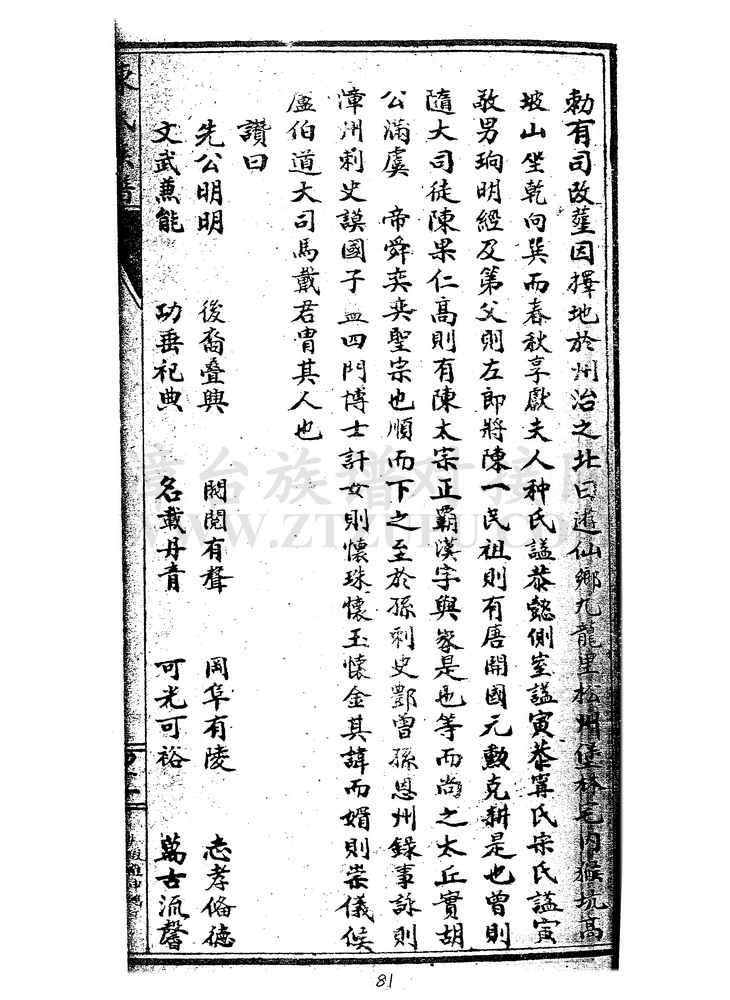 勅有司改塟因擇地於州治之北曰遊仙鄉九龍里松州堡林乇內猴坑高
坡山坐乾向巽而春秋享獻夫人种氏諡恭懿側室諡寅恭甯氏宋氏諡寅
敢男珦明經及第父則左郎將陳一民祖則有唐開國元勳克耕是也曾則
隨大司徒陳果仁高則有陳太宗正霸漢字與家是也等而尚之太丘實胡
公滿虞 帝舜奕奕聖宗也順而下之至於孫刺史酆曾孫恩州錄事詠則
漳州刺史謨國子監四門博士訐女則懷珠懷玉懷金其諱而婿則崇儀候
盧伯道大司馬戴君冑其人也
讚曰
先公明明 後裔叠興 閥閱有聲 岡阜有陵 志孝俻德
文武蒹能 功垂祀典 名載丹青 可光可裕 萬古流馨
漳台族譜对接
WWW.ZTZUPU.COM
81